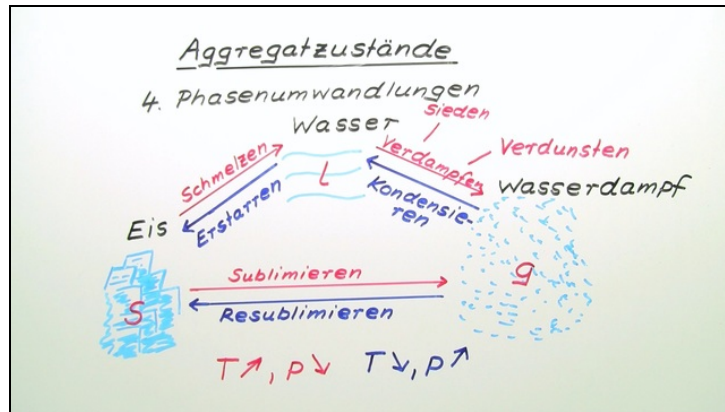 Aggregatzustände
4. Phasenumwandlungen
Sieden
Wasser
Verdampfen
Verdunsten
Schmelzen
l
Erstarren
Kondensie-
ren
Wasserdampf
Eis
s
Sublimieren
g
Resublimieren
T↗, p↘ T↘, p↗